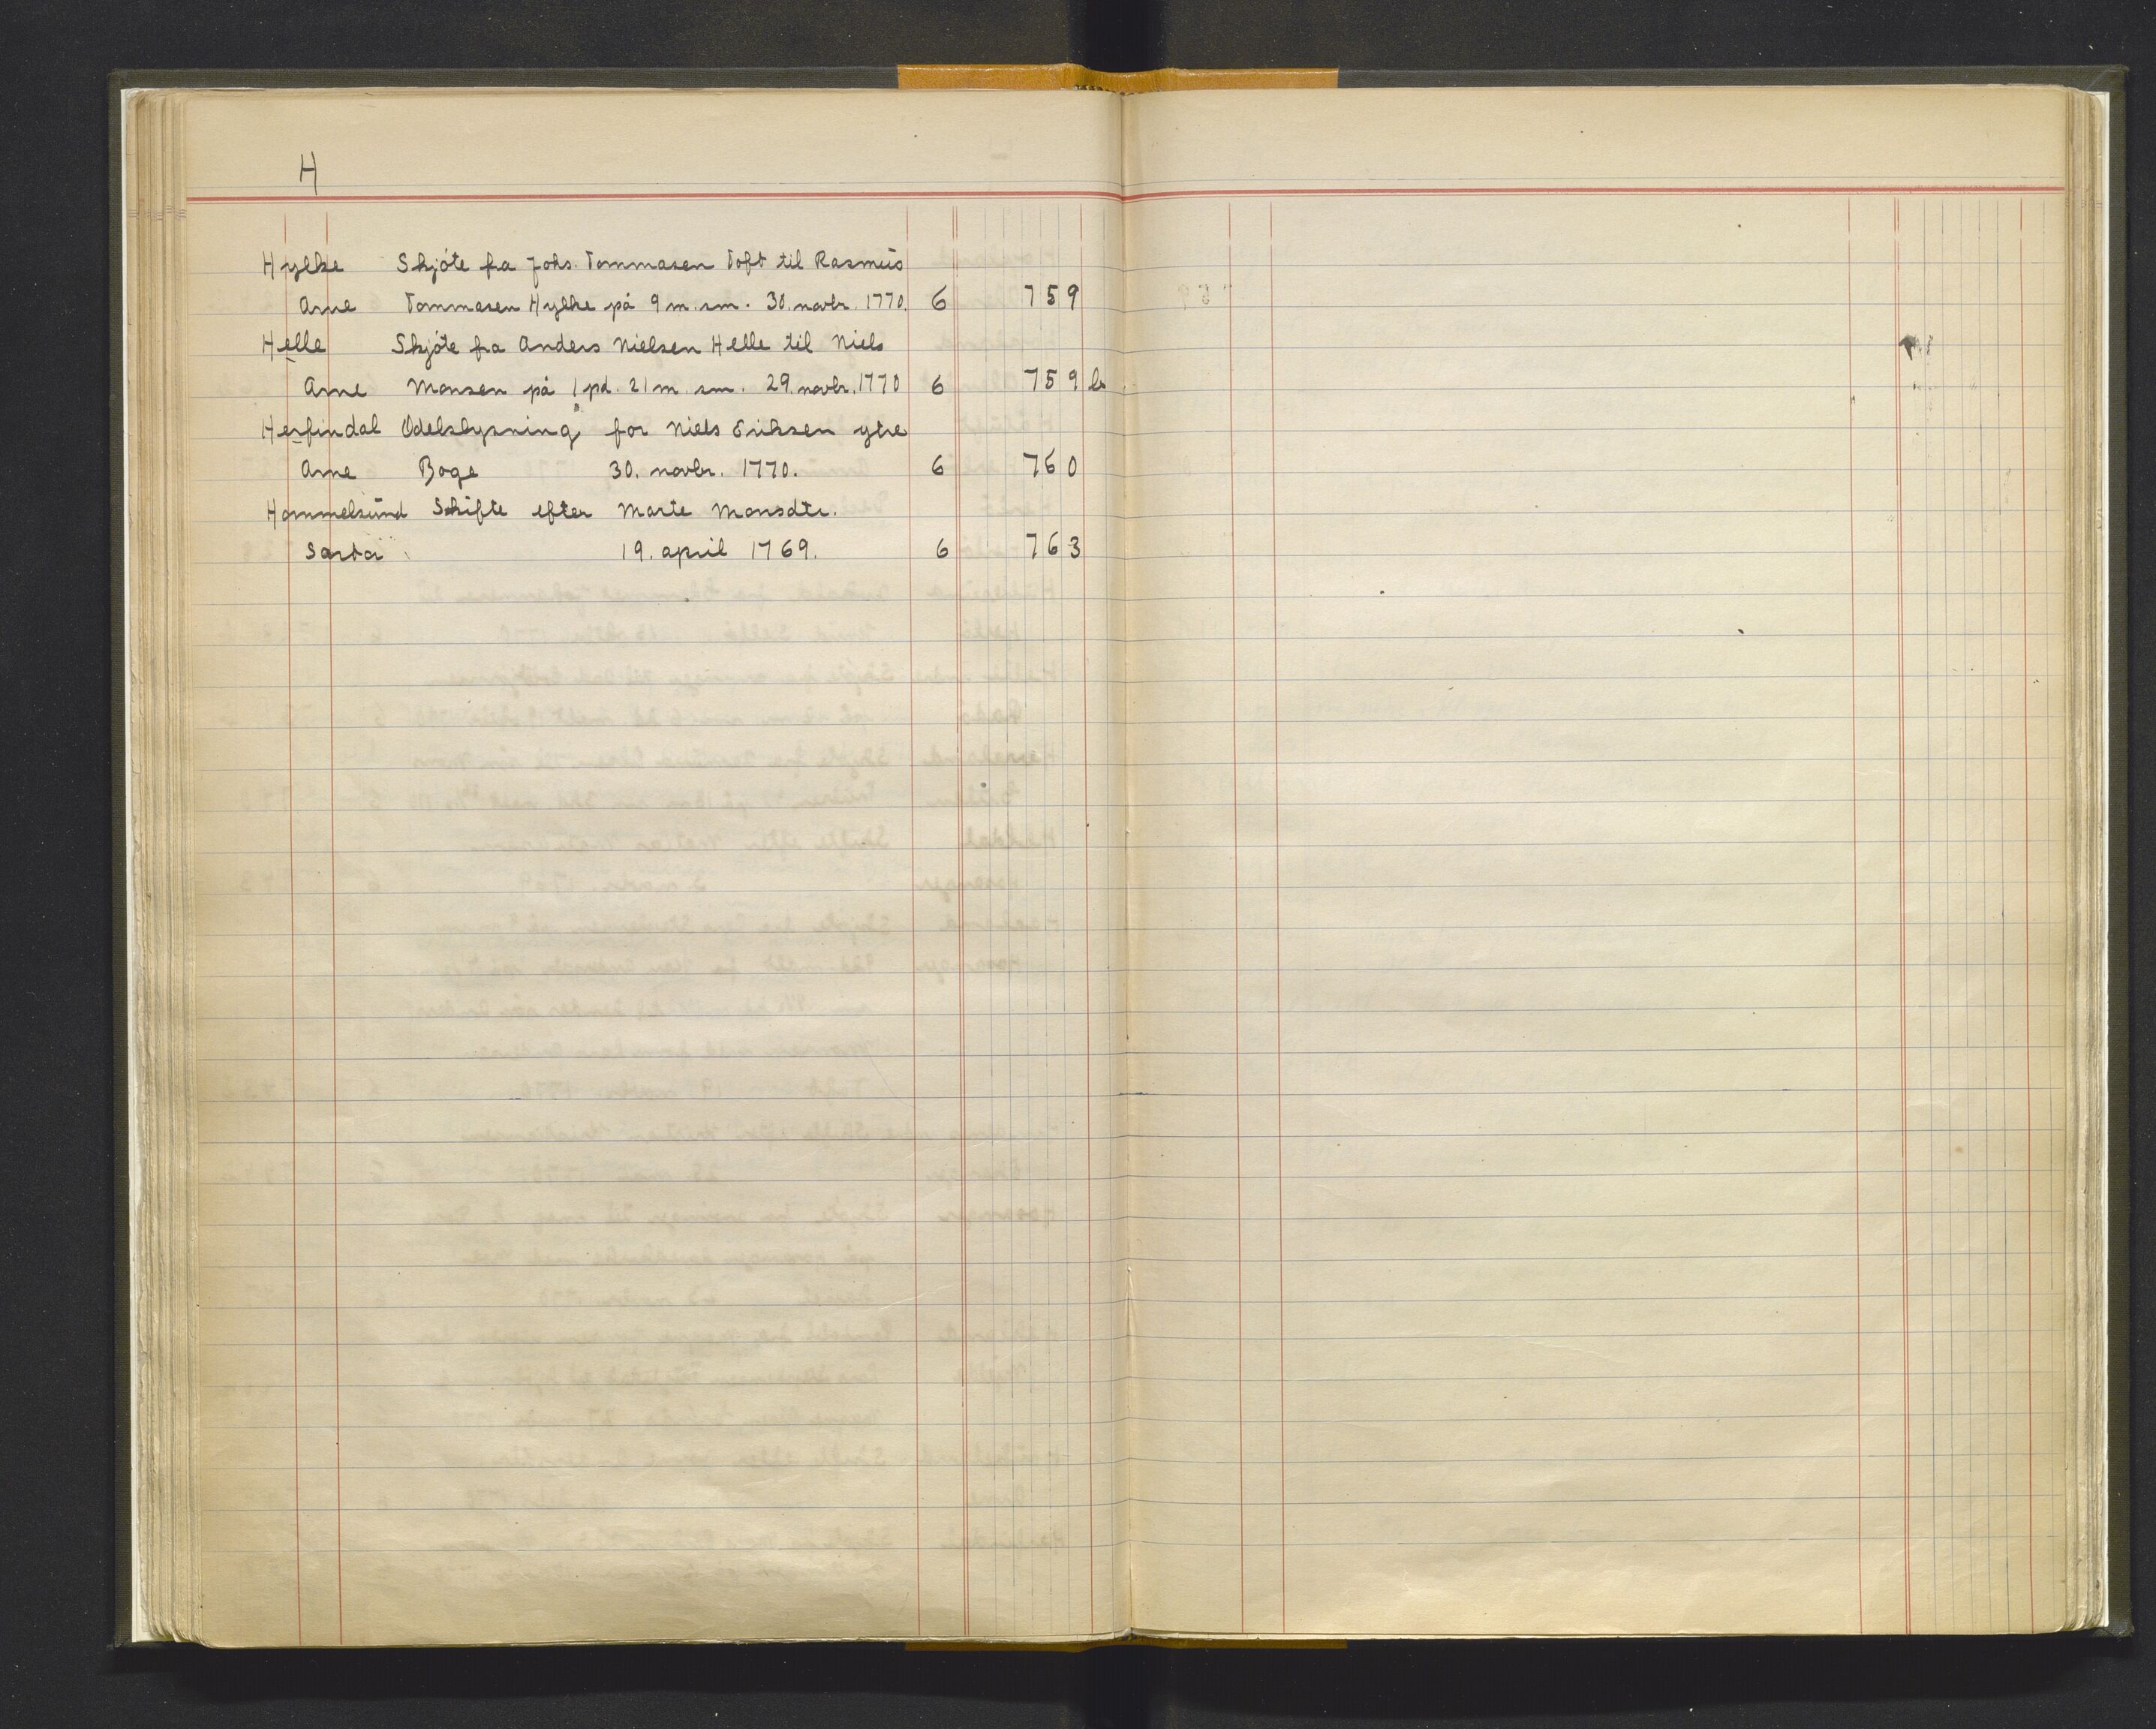 H
Hylke Skjöte fra Johs. Tommasen Toft til Rasmus
Arne Tommasen Hylke på 9 m. sm. 30. novbr. 1770. 6 759
Helle Skjöte fra Anders Nielsen Helle til Niels
Arne Monsen på 1 pd. 21 m. sm. 29. novbr. 1770 6 759 b
Herfindal Odelslysning for Niels Eriksen ytre
Arne Boge 30. novbr. 1770. 6 760
Hammelsund Skifte efter Marte Monsdtr.
Sartor 19. april 1769. 6 763